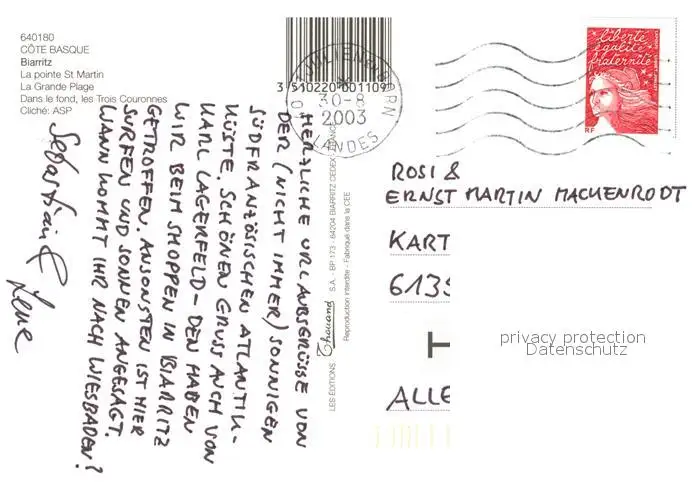 640180
CÔTE BASQUE
Biarritz
La pointe St Martin
La Grande Plage
Dans le fond, les Trois Couronnes
Cliché: ASP
3 510220 001109
30-8
2003
LANDES
liberté
égalité
fraternité
RF
HERZLICHE URLAUBSGRÜSSE VON
DER (NICHT IMMER) SONNIGEN
SÜDFRANZÖSISCHEN ATLANTIK-
KÜSTE. SCHÖNEN GRUSS AUCH VON
KARL LAGERFELD - DEN HABEN
WIR BEIM SHOPPEN IN BIARRITZ
GETROFFEN. ANSONSTEN IST HIER
SURFEN UND SONNEN ANGESAGT.
WANN KOMMT IHR NACH WIESBADEN?
Sebastian &
Lene
LES ÉDITIONS Thouand S.A. - BP 173 - 64204 BIARRITZ CEDEX FRANCE
Reproduction interdite - Fabriqué dans la CEE
ROSI &
ERNST MARTIN MACKENRODT
KART
6135
ALLE
privacy protection
Datenschutz